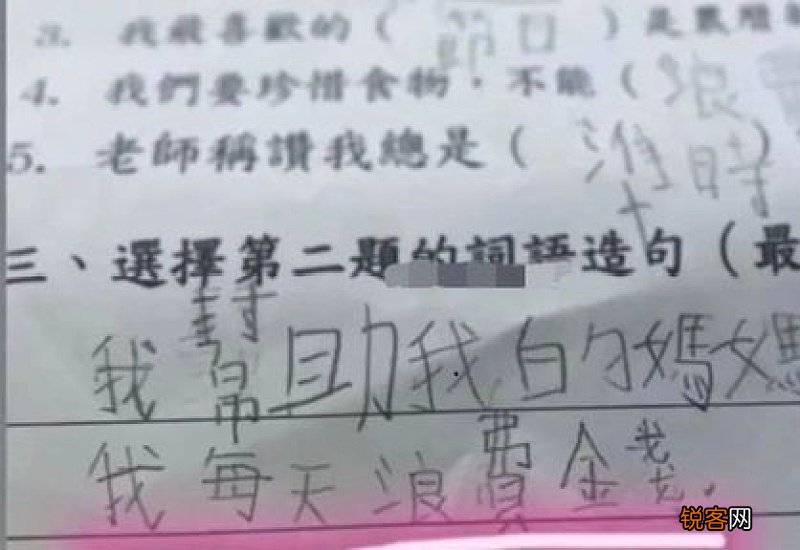 3. 我最喜歡的（節日）是農曆
4. 我們要珍惜食物，不能（浪費
5. 老師稱讚我總是（準時）
三、選擇第二題的詞語造句（最
我幫助我的媽媽
我每天浪費金錢.
锐客网